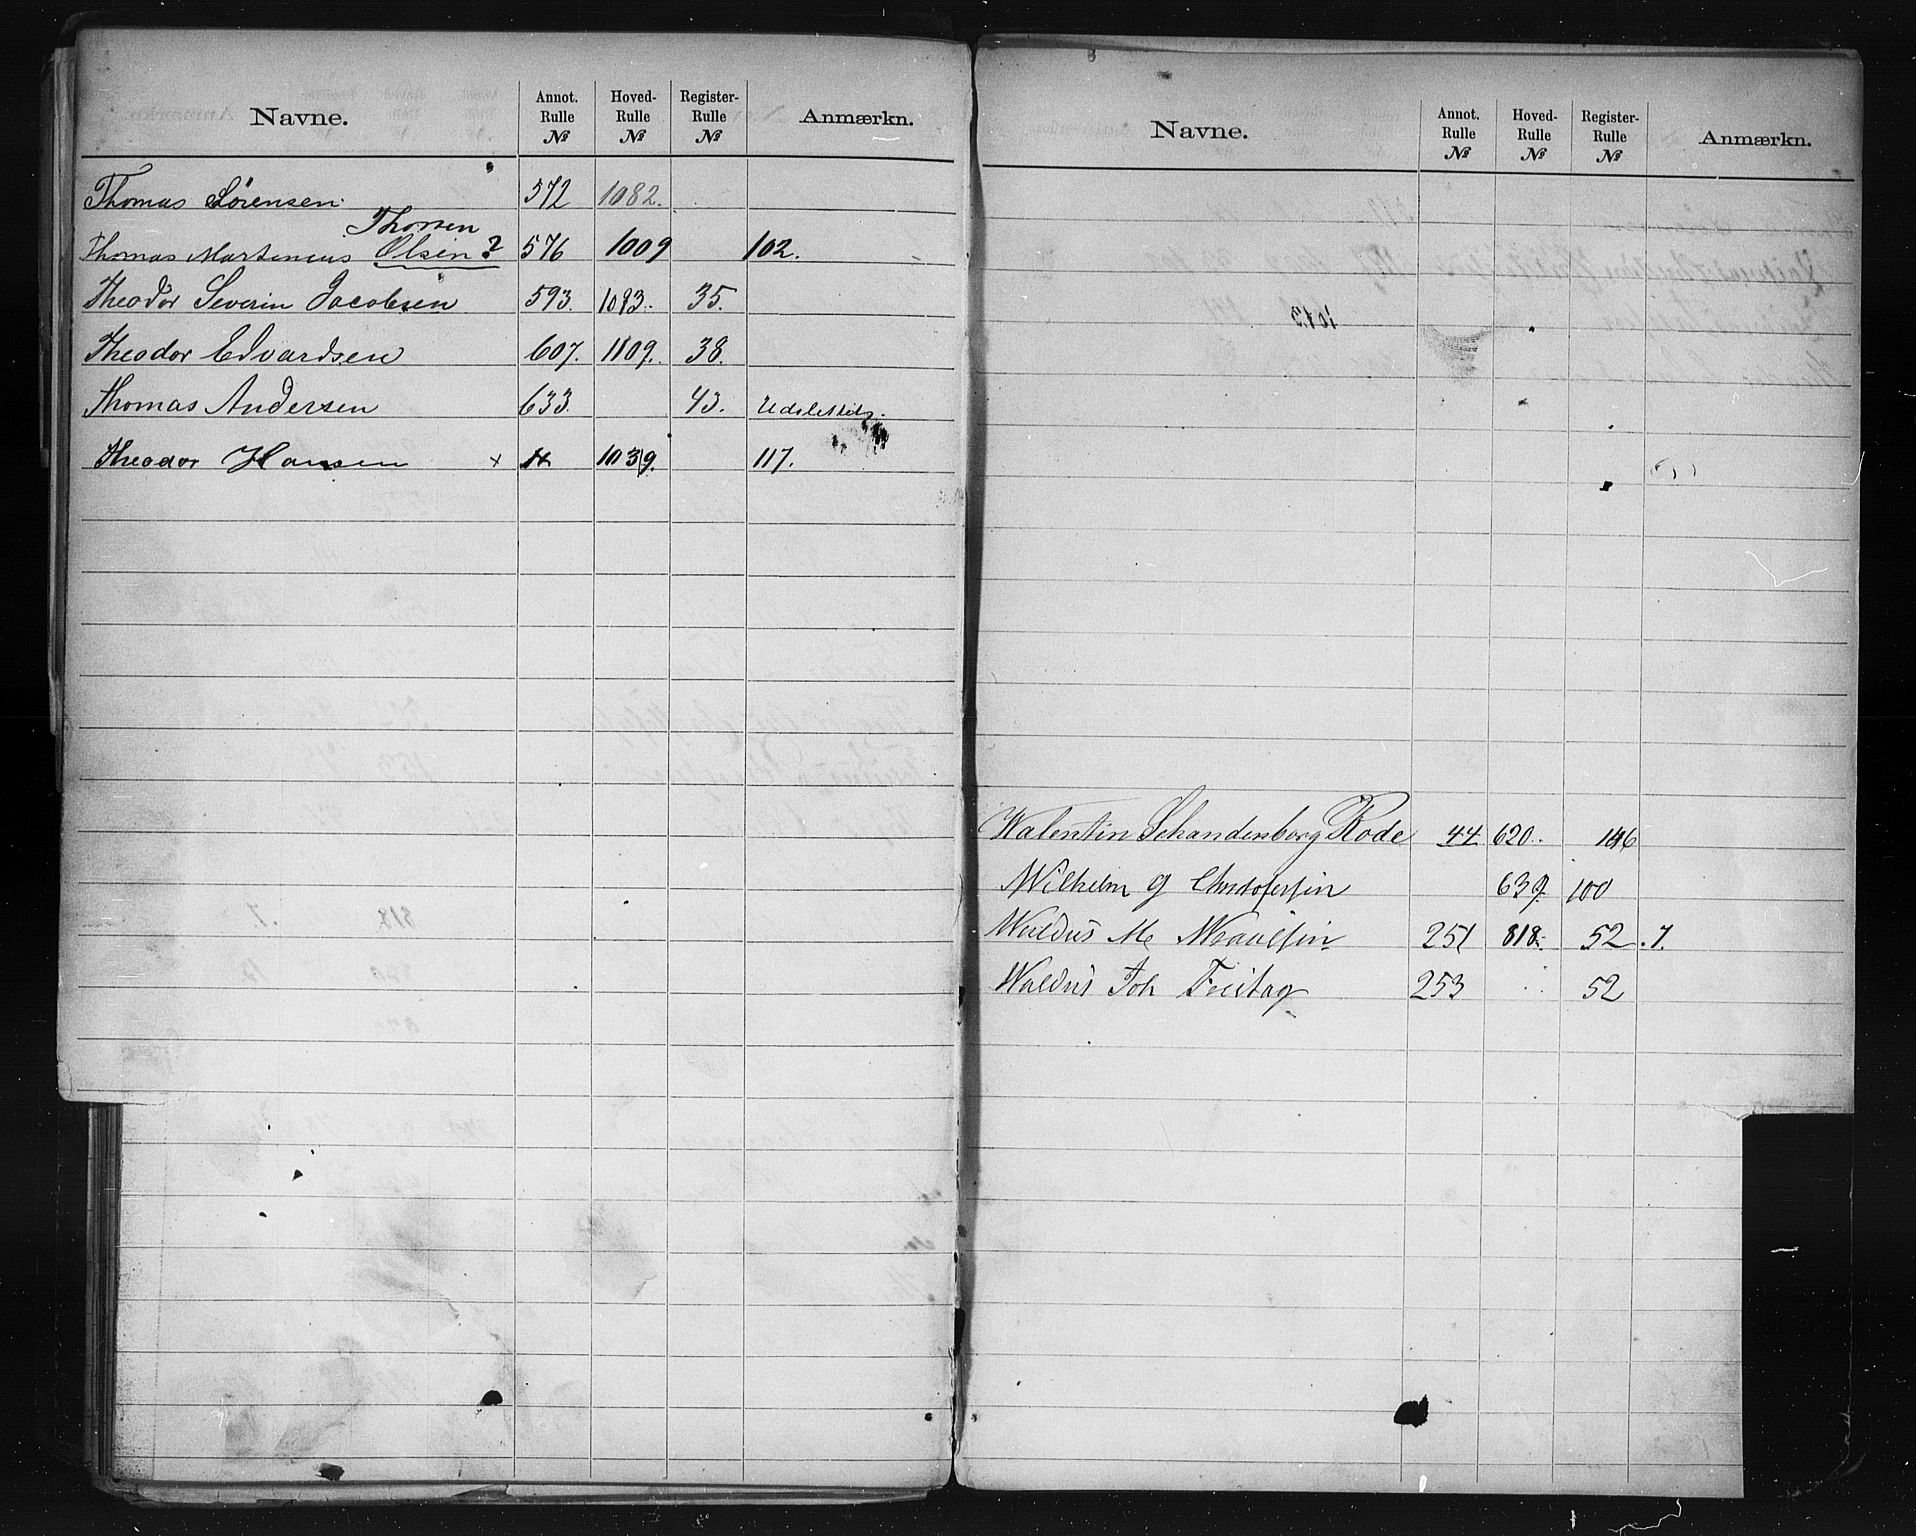 Navne. Annot. Rulle № Hoved-Rulle № Register-Rulle № Anmærkn.
Thomas Sörensen 572 1082.
Thorsen
Thomas Martenius Olsen? 576 1009 102.
Theodor Severin Jacobsen 593. 1083. 35.
Theodor Edvardsen 607. 1109. 38.
Thomas Andersen 633. 43. Udslettets.
Theodor Hansen x 1039. 117.
Navne. Annot. Rulle № Hoved-Rulle № Register-Rulle № Anmærkn.
Walentin Schandenborg Rode 44 620. 146
Wilhelm G Christofersen 639. 100
Waldus M 251 818. 52 .7.
Waldus Joh Freitag 253 52